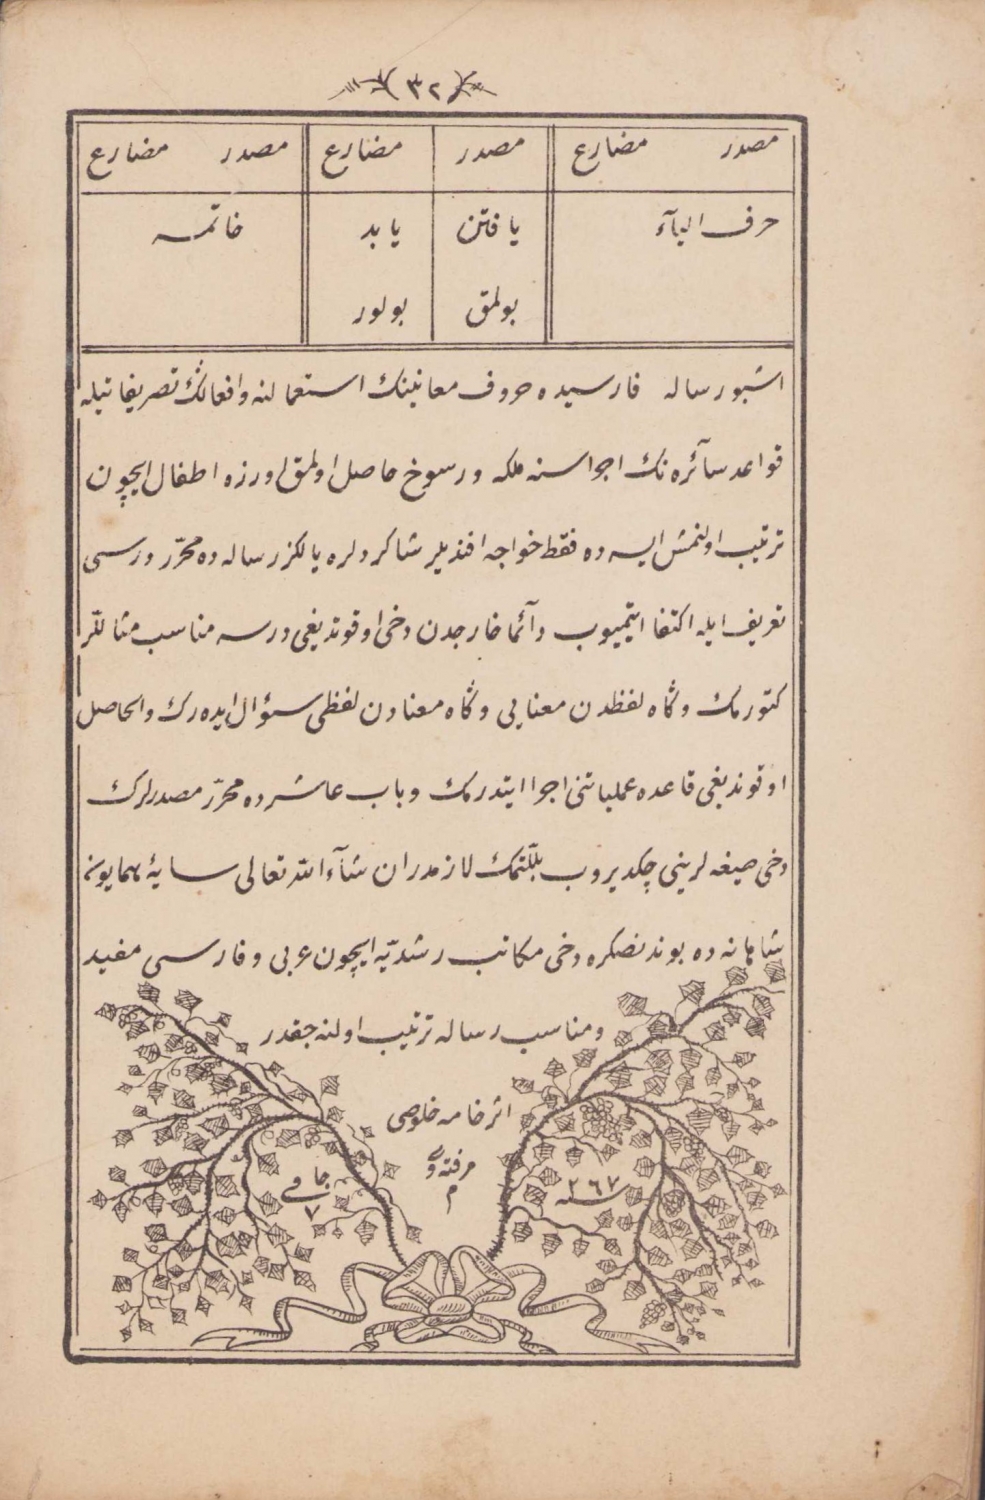 (٣٢)
مصدر مضارع مصدر مضارع مصدر مضارع
حرف الياء يافتن يابد خاتمه
بولمق بولور
اشبو رساله فارسيده حروف معانينك استعمالنه وافعالڭ تصريفاتيله
قواعد سآئره نك اجراسنه ملكه ورسوخ حاصل اولمق اوزره اطفال ايچون
ترتيب اولنمش ايسه ده فقط خواجه افنديلر شاكردلره يالكز رساله ده محرّر درسى
تعريف ايله اكتفا ايتميوب دآئما خارجدن دخى اوقونديغى درسه مناسب مثاللر
كتورمك وكاه لفظدن معنايى وكاه معنادن لفظى سؤال ايده رك والحاصل
اوقونديغى قاعده عملياتنى اجرا ايتدرمك وباب عاشرده محرّر مصدرلرك
دخى صيغه لرينى چكديروب بللتمك لازمدر ان شآء الله تعالى سايۀ همايونۀ
شاهانه ده بوندنصكره دخى مكاتب رشديّه ايچون عربى وفارسى مفيد
ومناسب رساله ترتيب اولنه جقدر
اثر خامه خلوصى
م
سنه ٢٦٧
جا
فى ٧